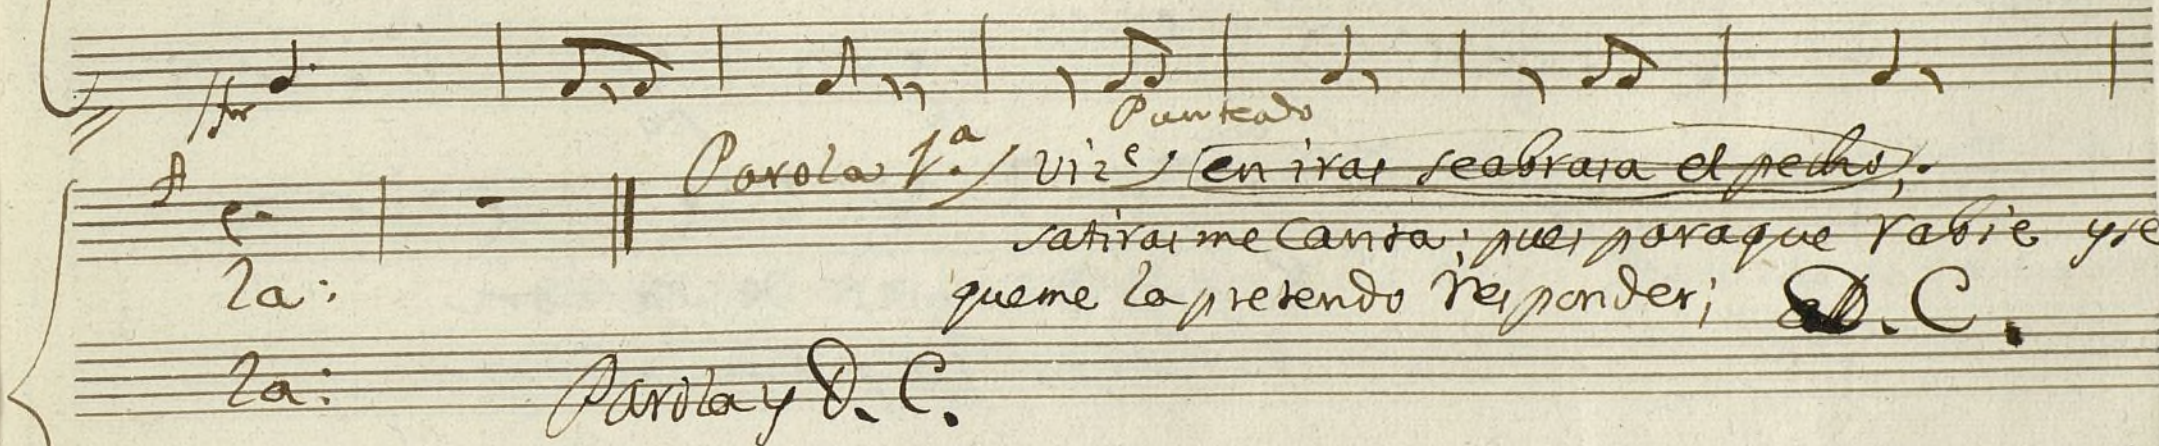 Punteado
Parola 1.ª / Viz.e / en iras seabrasa el pecho;
satiras me Canta; pues paraque rabie yse
la: queme la pretendo responder; D. C.
la: Parola y D. C.